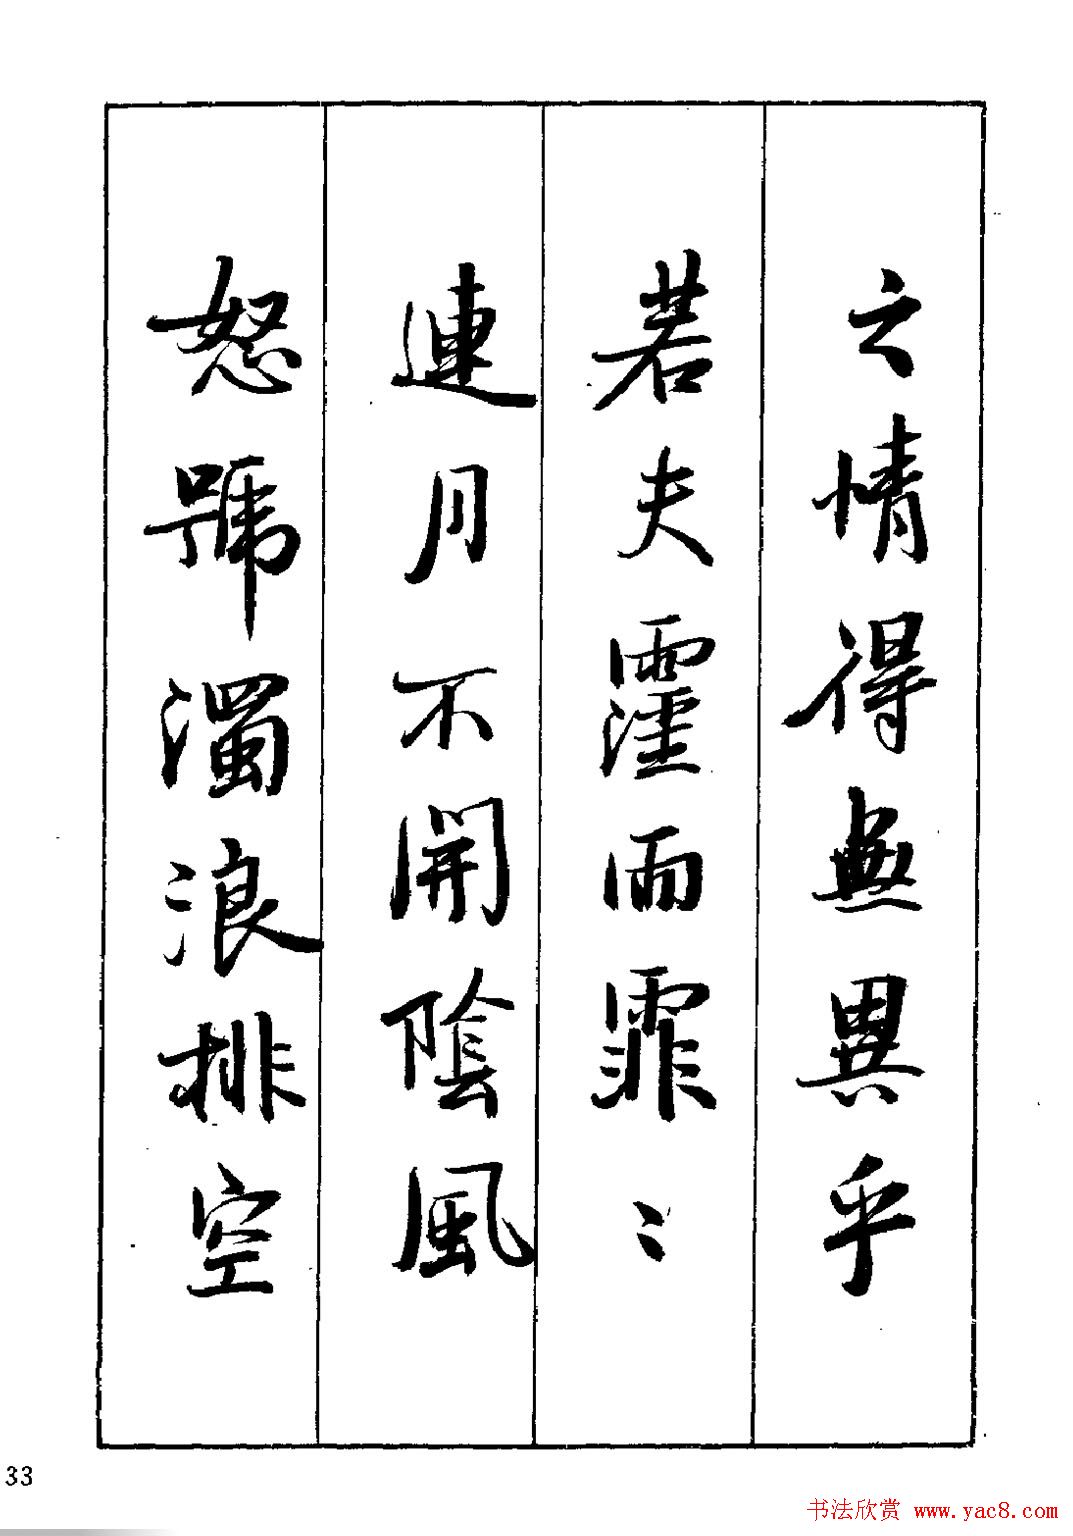 之情得無異乎
若夫霪雨霏〻
連月不開陰風
怒號濁浪排空
33
书法欣赏 www.yac8.com